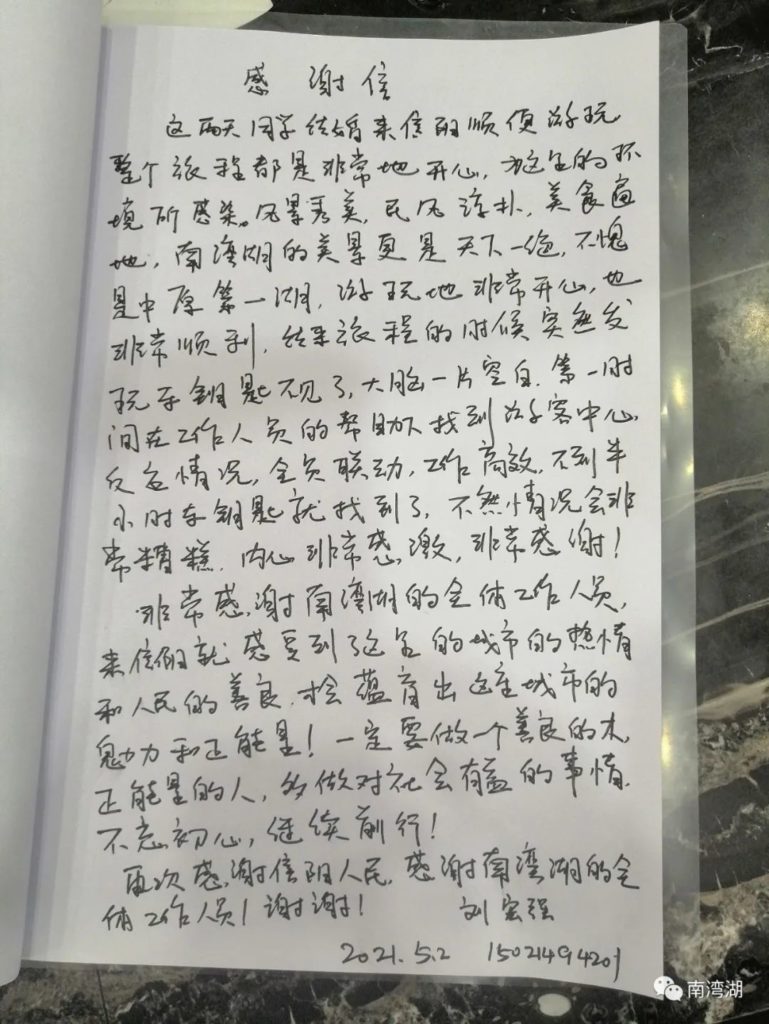 感谢信
这两天同学结婚来信阳顺便游玩
整个旅程都是非常地开心，被这里的环
境所感染。风景秀美，民风淳朴，美食遍
地，南湾湖的美景更是天下一绝，不愧
是中原第一湖，游玩地非常开心，也
非常顺利，结束旅程的时候突然发
现车钥匙不见了，大脑一片空白，第一时
间在工作人员的帮助下找到游客中心，
反应情况，全员联动，工作高效，不到半
小时车钥匙就找到了，不然情况会非
常糟糕，内心非常感激，非常感谢！
非常感谢南湾湖的全体工作人员，
来信阳就感受到了这里的城市的热情
和人民的善良，才会蕴育出这座城市的
魅力和正能量！一定要做一个善良的人，
正能量的人，多做对社会有益的事情，
不忘初心，继续前行！
再次感谢信阳人民，感谢南湾湖的全
体工作人员！谢谢！ 刘宏强
2021.5.2 15021494201
南湾湖